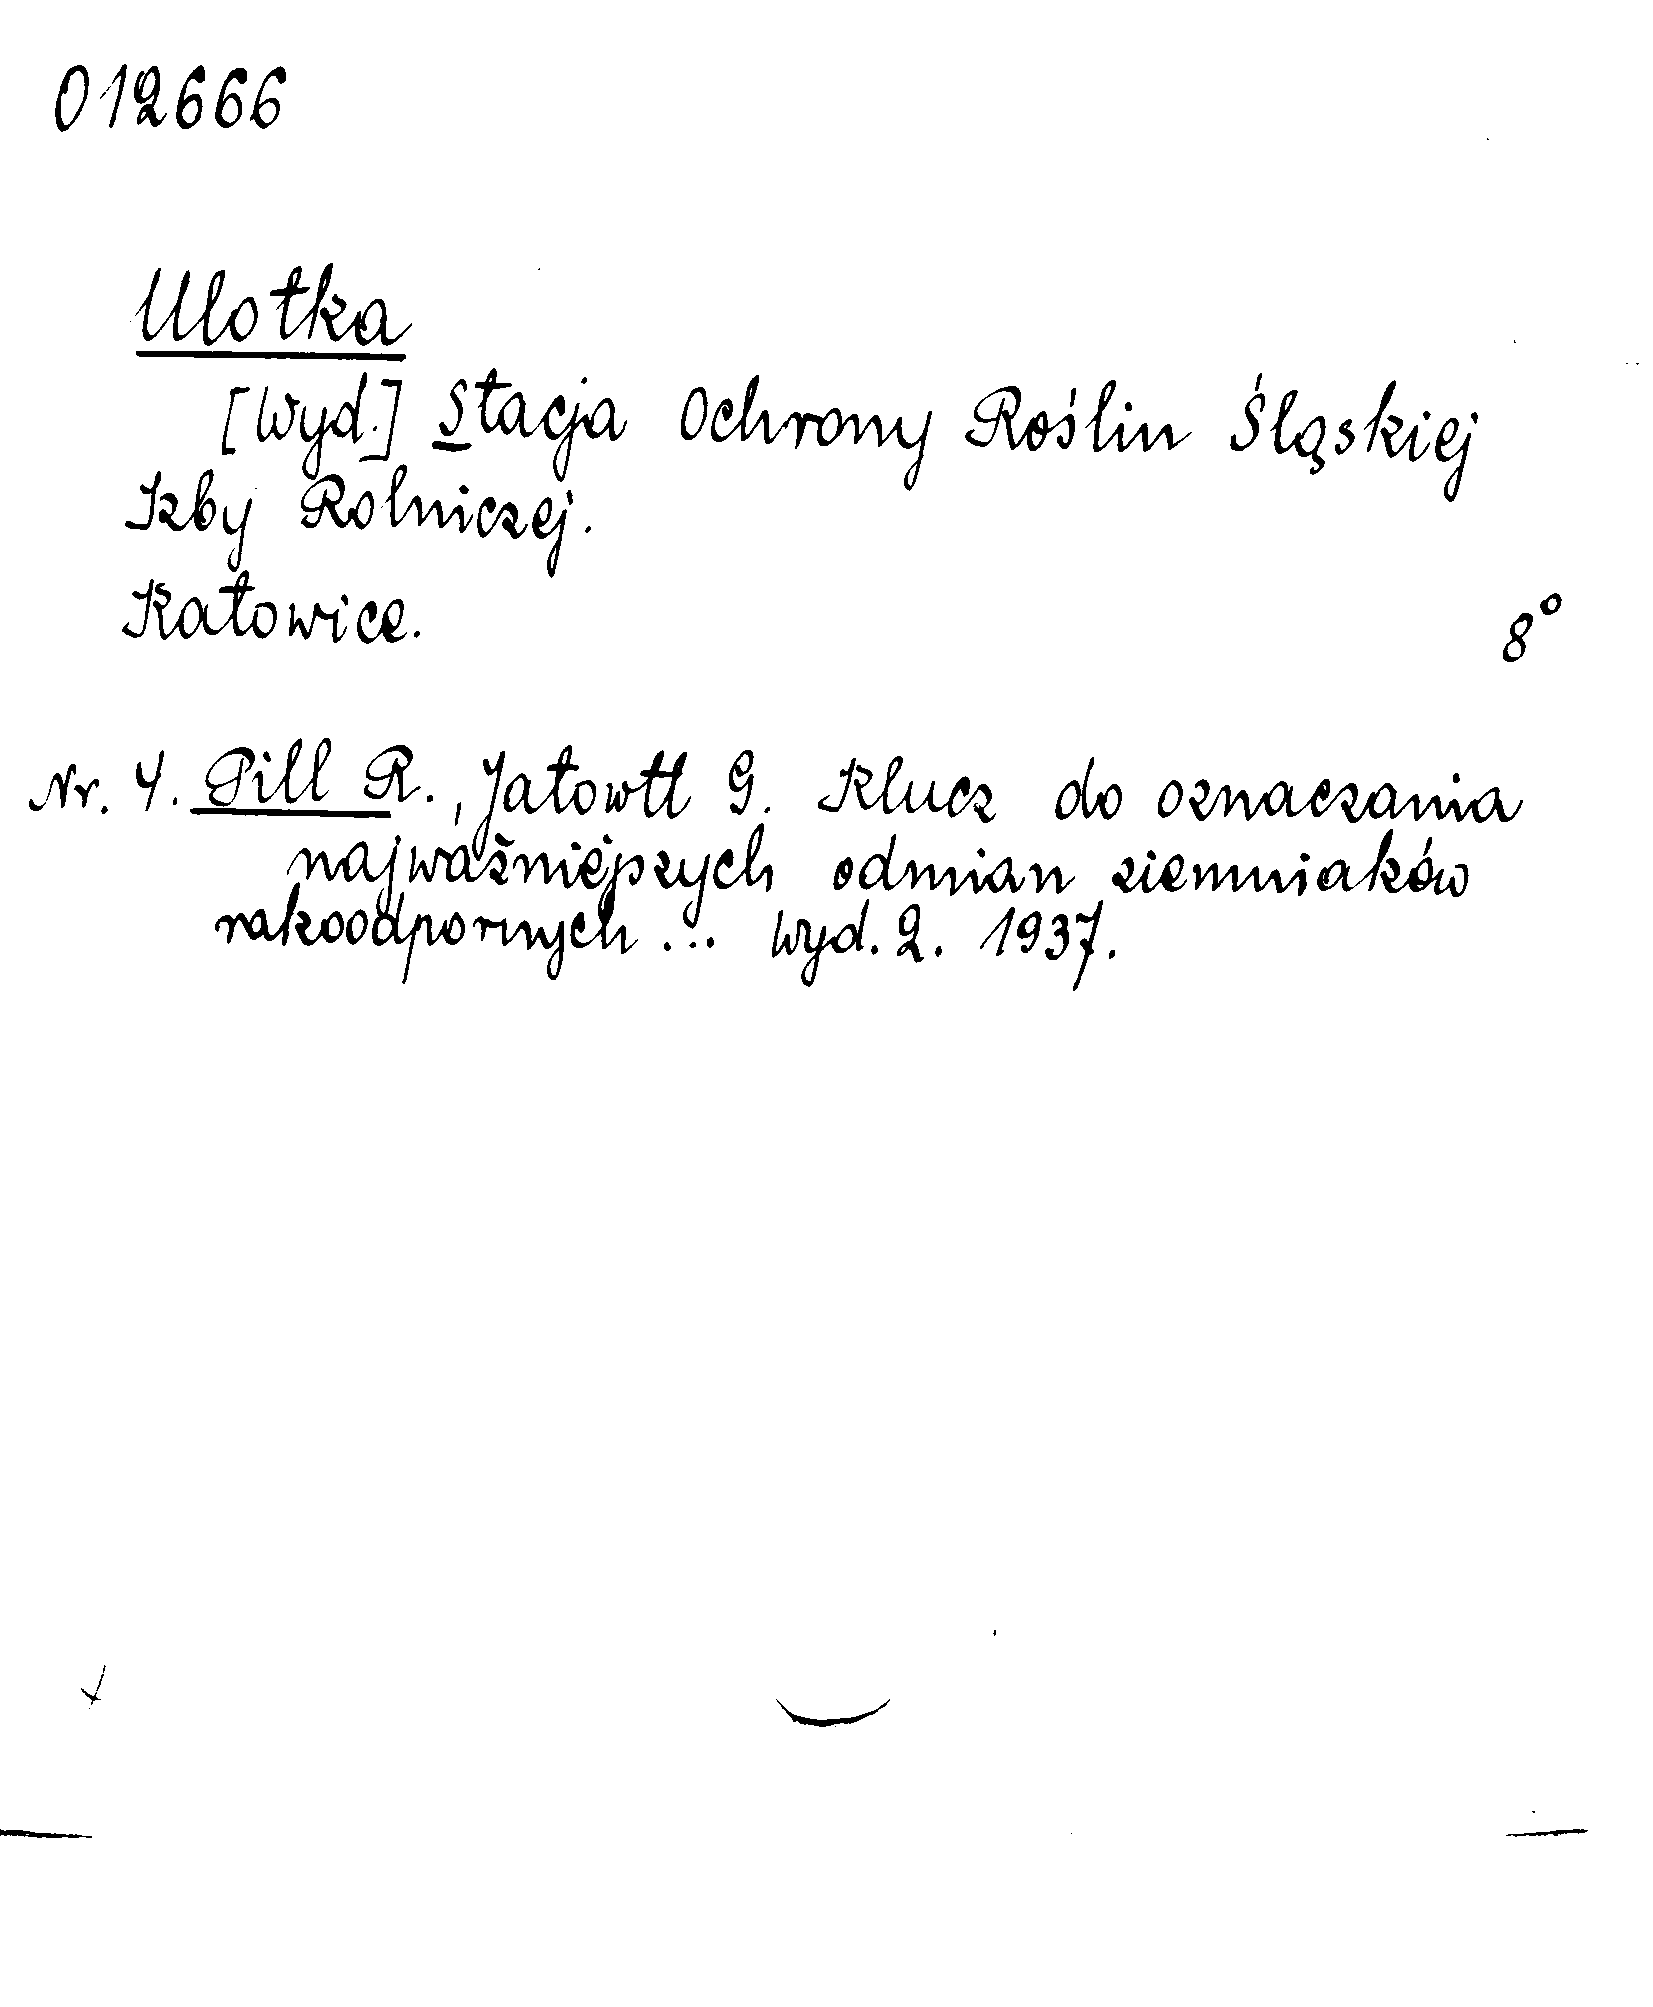 012666
Ulotka
[Wyd.] Stacja Ochrony Roślin Śląskiej
Izby Rolniczej.
Katowice.
8°
Nr. 4. Pill R., Jatowtt G. Klucz do oznaczania
najważniejszych odmian ziemniaków
rakoodpornych ... wyd. 2. 1937.